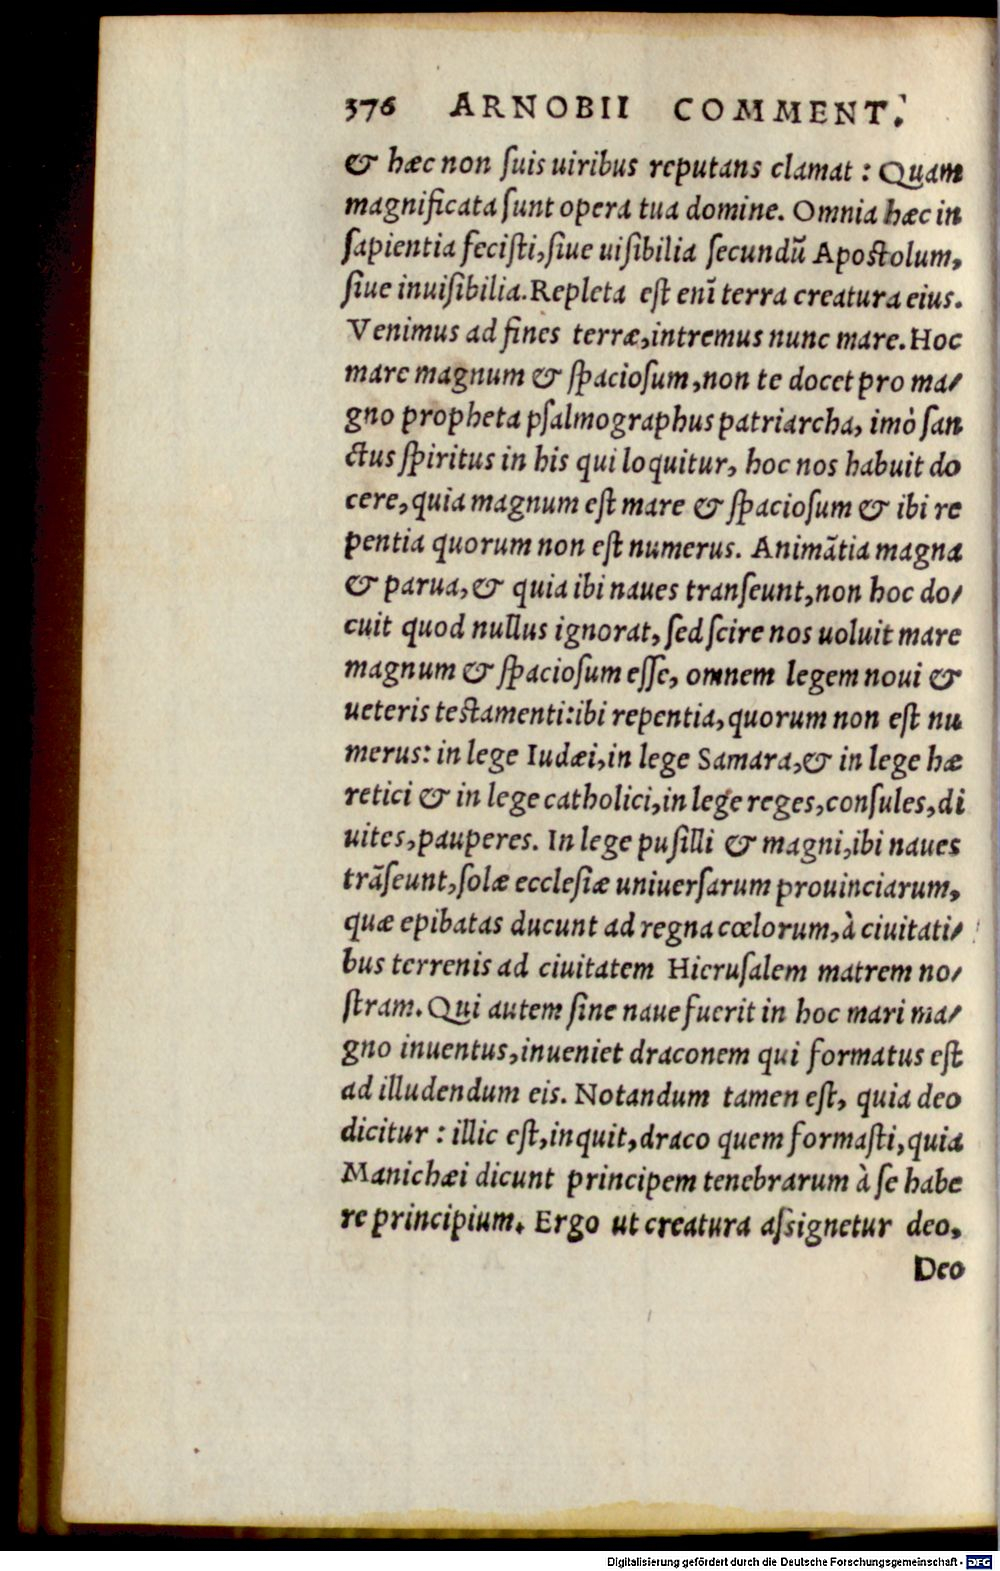 376 ARNOBII COMMENT.
& hæc non ſuis uiribus reputans clamat : Quam
magnificata ſunt opera tua domine. Omnia hæc in
ſapientia feciſti, ſiue uiſibilia ſecundũ Apoſtolum,
ſiue inuiſibilia. Repleta eſt enĩ terra creatura eius.
Venimus ad fines terræ, intremus nunc mare. Hoc
mare magnum & ſpacioſum, non te docet pro ma/
gno propheta pſalmographus patriarcha, imò ſan
ctus ſpiritus in his qui loquitur, hoc nos habuit do
cere, quia magnum eſt mare & ſpacioſum & ibi re
pentia quorum non eſt numerus. Animãtia magna
& parua, & quia ibi naues tranſeunt, non hoc do/
cuit quod nullus ignorat, ſed ſcire nos uoluit mare
magnum & ſpacioſum eſſe, omnem legem noui &
ueteris teſtamenti: ibi repentia, quorum non eſt nu
merus: in lege Iudæi, in lege Samara, & in lege hæ
retici & in lege catholici, in lege reges, conſules, di
uites, pauperes. In lege puſilli & magni, ibi naues
trãſeunt, ſolæ eccleſiæ uniuerſarum prouinciarum,
quæ epibatas ducunt ad regna cœlorum, à ciuitati/
bus terrenis ad ciuitatem Hieruſalem matrem no/
ſtram. Qui autem ſine naue fuerit in hoc mari ma/
gno inuentus, inueniet draconem qui formatus eſt
ad illudendum eis. Notandum tamen eſt, quia deo
dicitur : illic eſt, inquit, draco quem formaſti, quia
Manichæi dicunt principem tenebrarum à ſe habe
re principium. Ergo ut creatura aſsignetur deo,
Deo
Digitalisierung gefördert durch die Deutsche Forschungsgemeinschaft - DFG